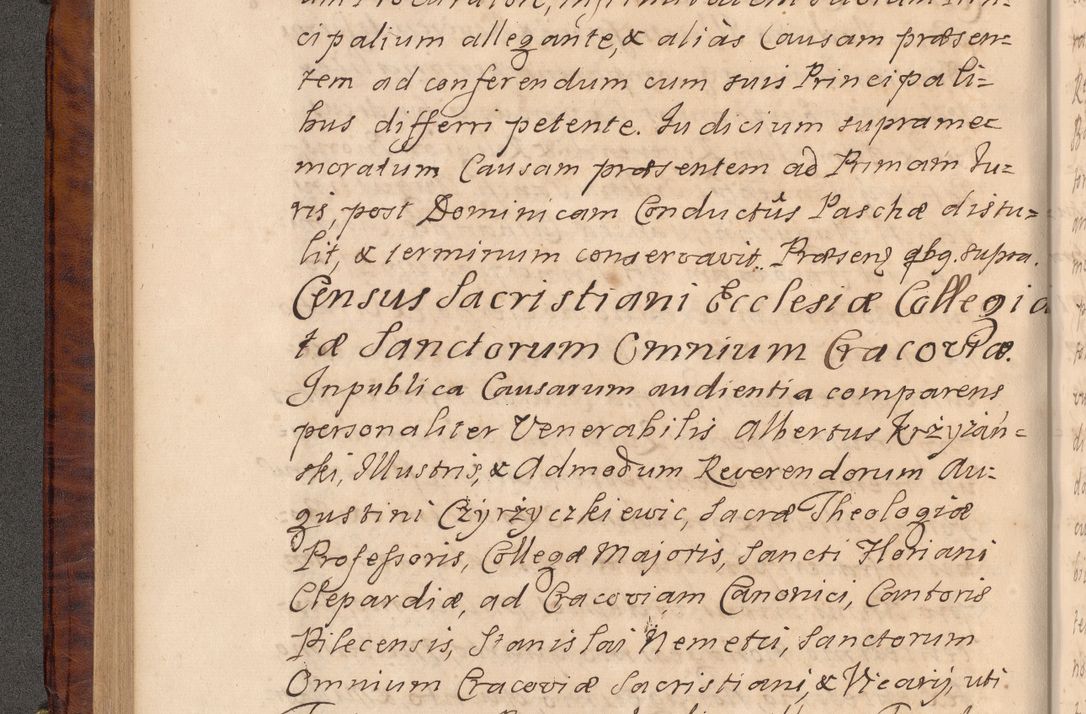 cipalium allegante, & aliàs Causam præsen=
tem ad conferendum cum suis Principali=
bus differri petente. Judicium suprame=
moratum Causam præsentem ad Primam Ju=
ris, post Dominicam Conductûs Paschæ distu=
lit, & terminum conservavit. Præsen? qbg. supra.
Census Sacristiani Ecclesiæ Collegia
tæ Sanctorum Omnium Cracoviæ.
In publica Causarum audientia comparens
personaliter Venerabilis Albertus Krzyżań=
ski, Illustris, & Admodum Reverendorum Au=
gustini Czyrzyczkiewic, Sacræ Theologiæ
Professoris, Collegæ Majoris, Sancti Floriani
Clepardiæ, ad Cracoviam Canonici, Cantoris
Pilecensis, Stanislai Nemetii, Sanctorum
Omnium Cracoviæ Sacristiani, & Vicarij, uti